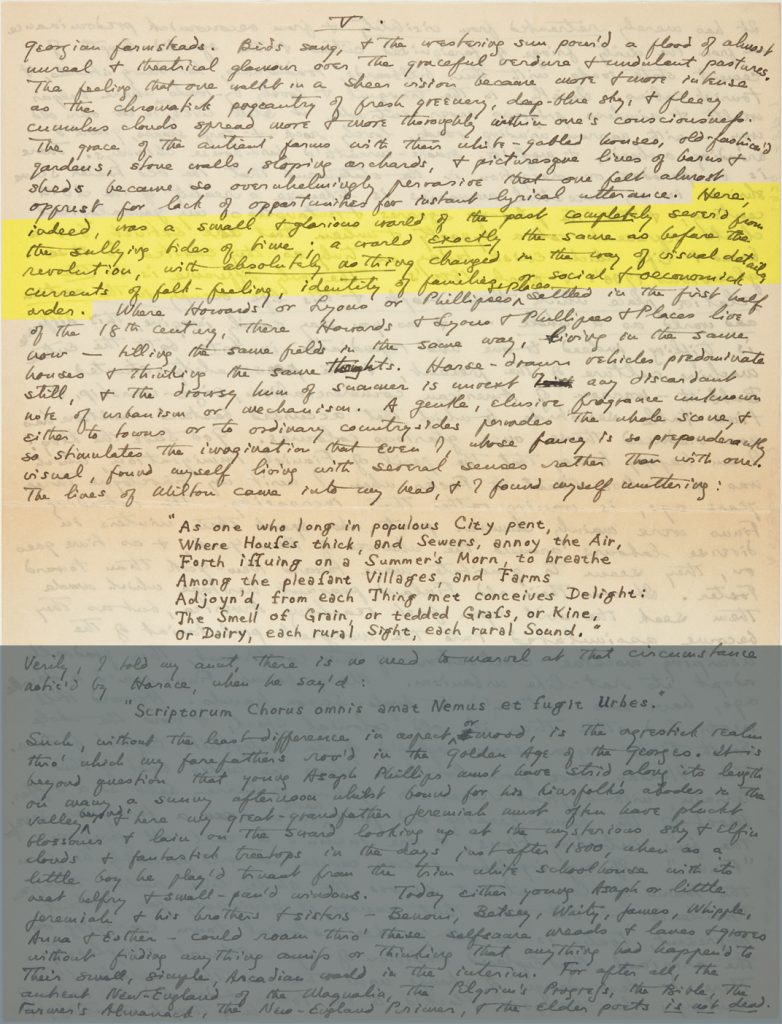 V.
Georgian farmsteads. Birds sang, & the westering sun pour'd a flood of almost
unreal & theatrical glamour over the graceful verdure & undulant pastures.
The feeling that one walkt in a sheer vision became more & more intense
as the chromatick pageantry of fresh greenery, deep-blue sky, & fleecy
cumulus clouds spread more & more thoroughly within one's consciousness.
The grace of the antient farms with their white-gabled houses, old-fashion'd
gardens, stone walls, sloping orchards, & picturesque lines of barns &
sheds became so overwhelmingly pervasive that one felt almost
opprest for lack of opportunities for instant lyrical utterance. Here,
indeed, was a small & glorious world of the past completely sever'd from
the sullying tides of time; a world exactly the same as before the
revolution, with absolutely nothing changed in the way of visual details,
currents of folk-feeling, identity of families, or social & oeconomick
order. Where Howards or Lyons or Phillipses & Places settled in the first half
of the 18th century, there Howards & Lyons & Phillipses & Places live
now — tilling the same fields in the same way, living in the same
houses & thinking the same thoughts. Horse-drawn vehicles predominate
still, & the drowsy hum of summer is unvext by any discordant
note of urbanism or mechanism. A gentle, elusive fragrance unknown
either to towns or to ordinary countrysides pervades the whole scene, &
so stimulates the imagination that even I, whose fancy is so preponderantly
visual, found myself living with several senses rather than with one.
The lines of Milton came into my head, & I found myself muttering:
"As one who long in populous City pent,
Where Houſes thick, and Sewers, annoy the Air,
Forth iſſuing on a Summer's Morn, to breathe
Among the pleaſant Villages, and Farms
Adjoyn'd, from each Thing met conceives Delight:
The Smell of Grain, or tedded Graſs, or Kine,
Or Dairy, each rural Sight, each rural Sound."
Verily, I told my aunt, there is no need to marvel at that circumstance
notic'd by Horace, when he say'd:
"Scriptorum Chorus omnis amat Nemus et fugit Urbes."
Such, without the least difference in aspect or mood, is the agrestick realm
thro' which my forefathers rov'd in the Golden Age of the Georges. It is
beyond question that young Asaph Phillips must have strid along its length
on many a sunny afternoon whilst bound for his kinsfolk's abodes in the
valley beyond; & here my great-grandfather Jeremiah must often have pluckt
blossoms & lain on the sward looking up at the mysterious sky & elfin
clouds & fantastick treetops in the days just after 1800, when as a
little boy he play'd truant from the trim white schoolhouse with its
neat belfry & small-pan'd windows. Today either young Asaph or little
Jeremiah & his brothers & sisters — Benoni, Betsey, Waity, James, Whipple,
Anna & Esther — could roam thro' these selfsame meads & lanes & groves
without finding anything amiſs or thinking that anything had happen'd to
their small, simple, Arcadian world in the interim. For after all, the
antient New-England of the Magnalia, the Pilgrim's Progreſs, the Bible, the
Farmer's Almanack, the New-England Primer, & the elder poets is not dead.